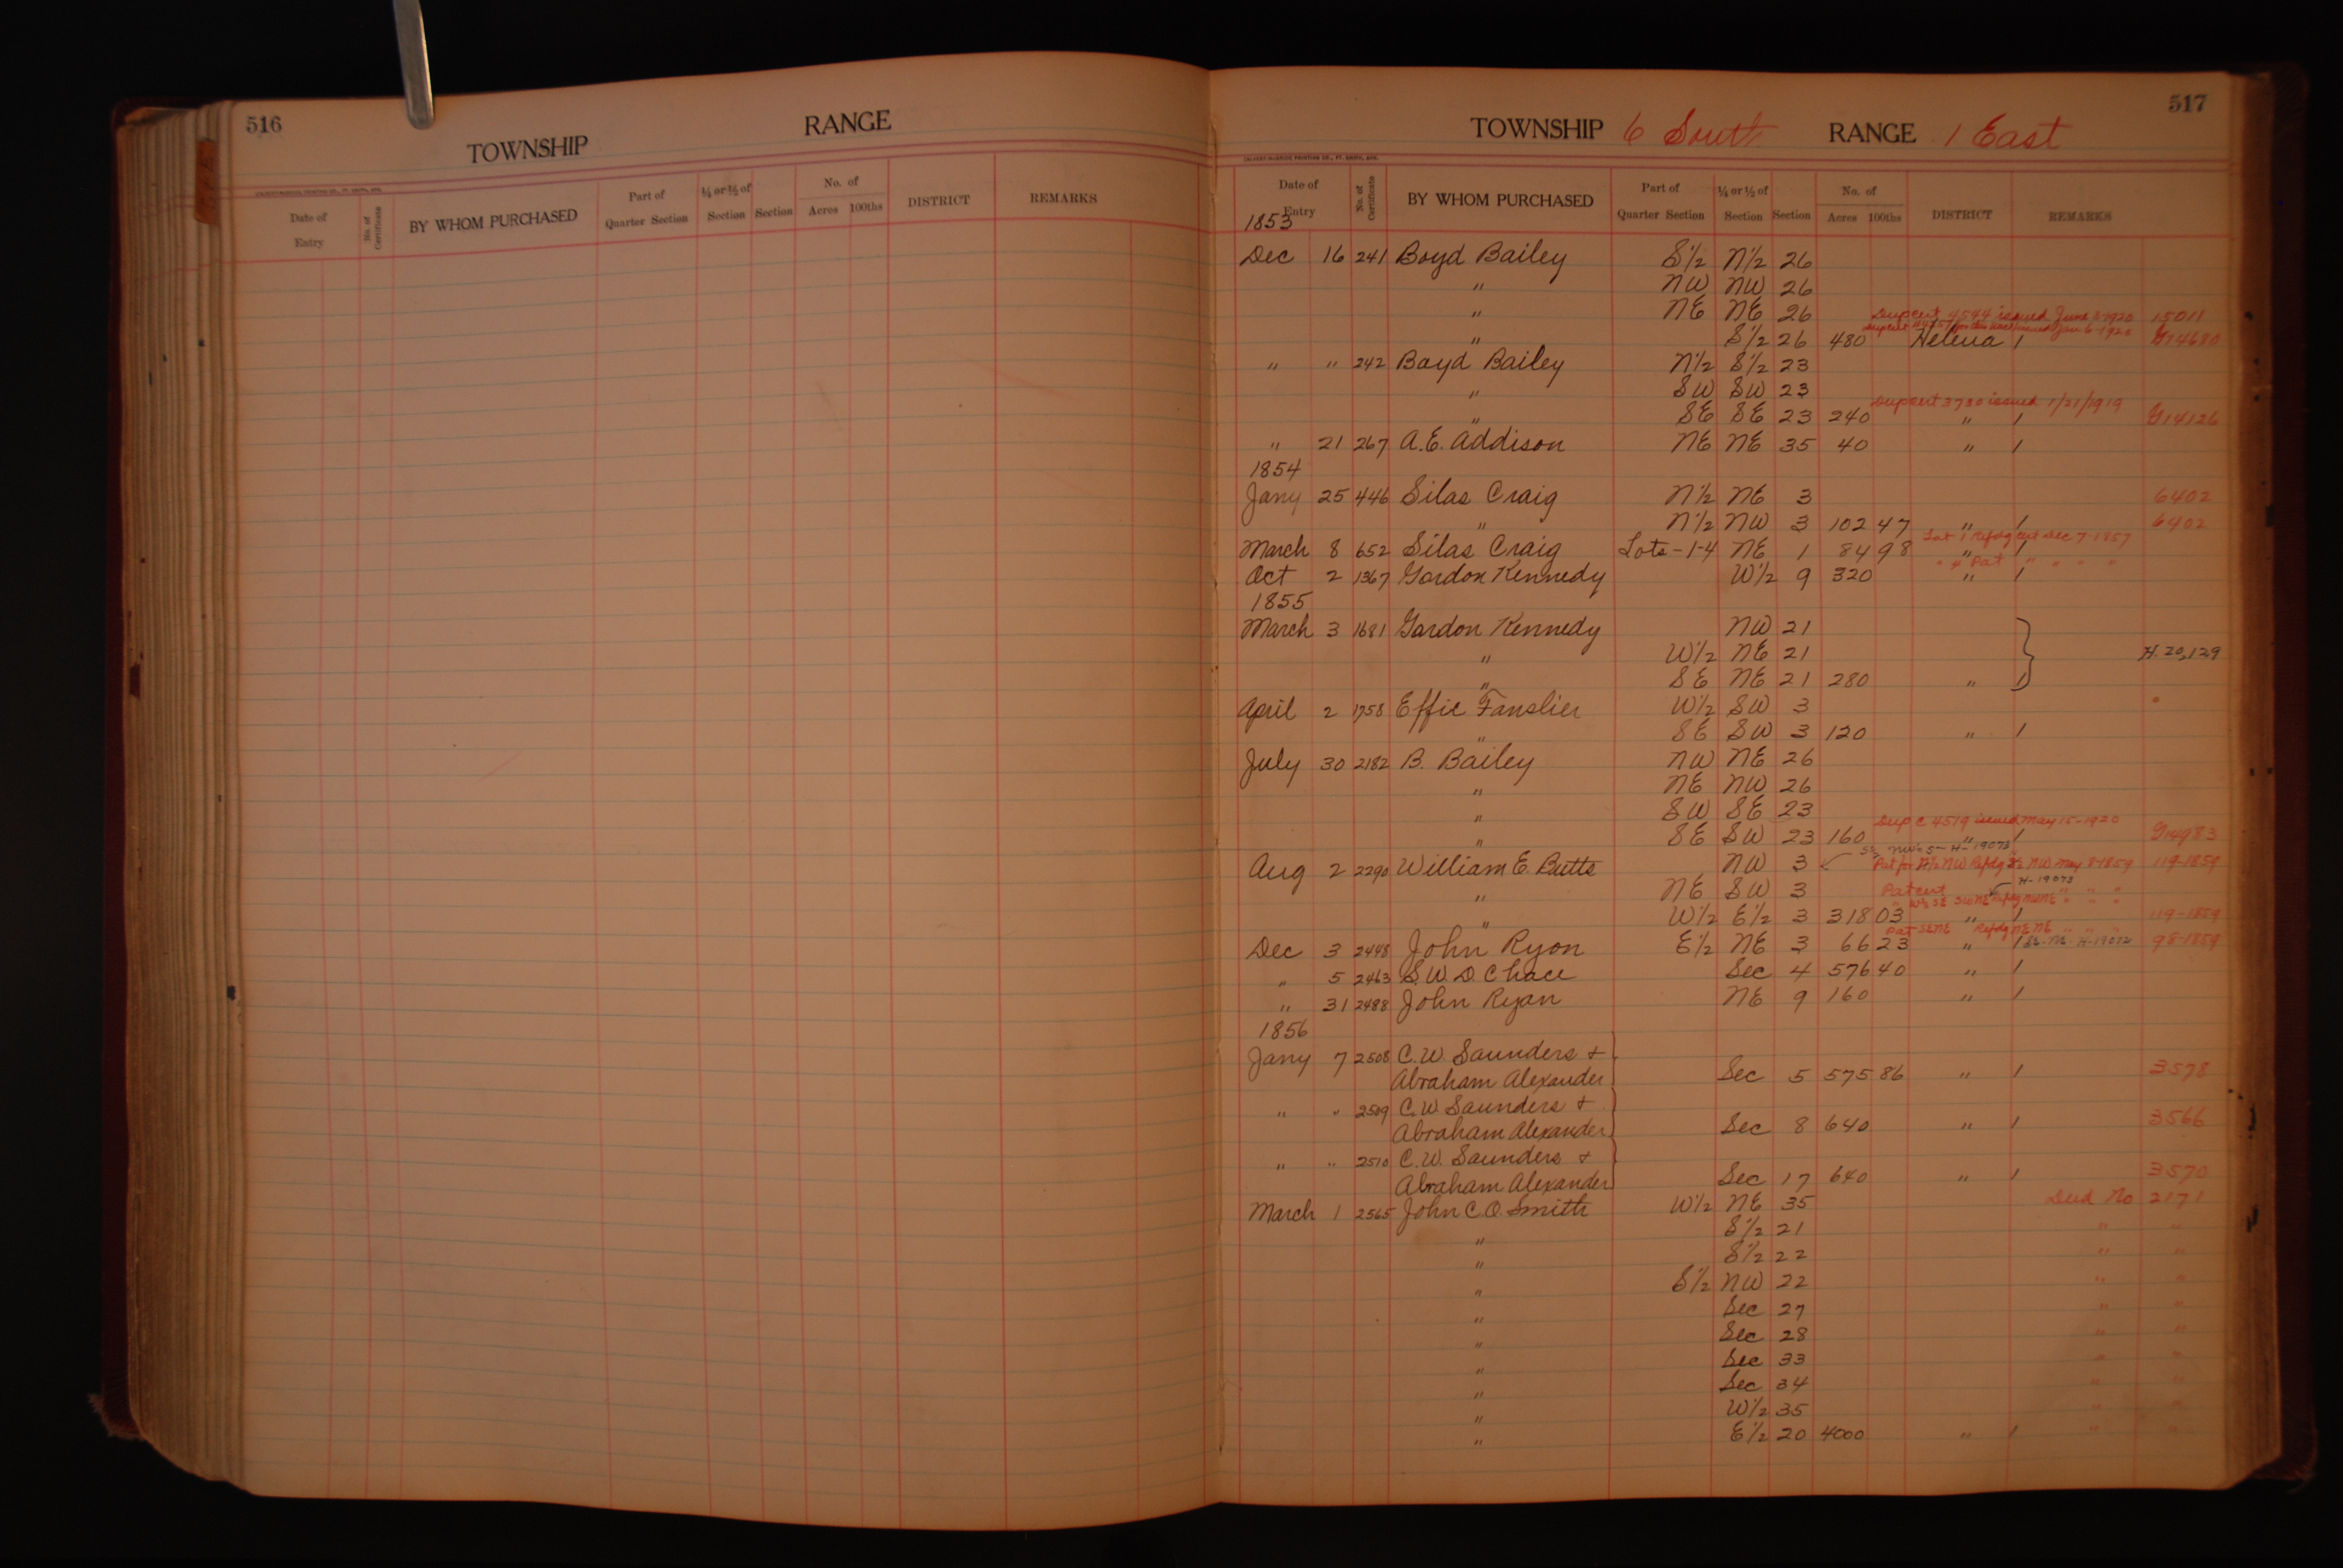 516
TOWNSHIP RANGE
CALVERT-McBRIDE PRINTING CO., FT. SMITH, ARK.
Date of Entry No. of Certificate BY WHOM PURCHASED Part of Quarter Section ¼ or ½ of Section Section No. of Acres 100ths DISTRICT REMARKS
517
TOWNSHIP 6 South RANGE 1 East
CALVERT-McBRIDE PRINTING CO., FT. SMITH, ARK.
Date of Entry No. of Certificate BY WHOM PURCHASED Part of Quarter Section ¼ or ½ of Section Section No. of Acres 100ths DISTRICT REMARKS
1853
Dec 16 241 Boyd Bailey S½ N½ 26
" NW NW 26
" NE NE 26 Dup cert 4544 issued June 3-1920 15011
Dup cert issued Jan 6-1920
" S½ 26 480 Helena / G14680
" " 242 Boyd Bailey N½ S½ 23
" SW SW 23
Dup cert 3780 issued 1/21/1919
" SE SE 23 240 " / G14126
" 21 267 A.E. Addison NE NE 35 40 " /
1854
Jany 25 446 Silas Craig N½ NE 3 6402
" N½ NW 3 102 47 " / 6402
Lot 1 Refdg cert Dec 7-1857
March 8 652 Silas Craig Lots-1-4 NE 1 84 98 " /
" 4 Pat " " " "
Oct 2 1367 Gordon Kennedy W½ 9 320 " /
1855
March 3 1681 Gordon Kennedy NW 21
" W½ NE 21 H. 20,129
" SE NE 21 280 " /
April 2 1758 Effie Fanslier W½ SW 3
" SE SW 3 120 " /
July 30 2182 B. Bailey NW NE 26
" NE NW 26
" SW SE 23
Dup C 4519 issued May 15-1920
" SE SW 23 160 " / G14983
S½ NW H-19073
Aug 2 2290 William E. Butts NW 3 Pat for N½ NW Refdg S½ NW May 8-1859 119-1859
H-19073
" NE SW 3 Patent " " "
W½ SE SWNE Refdg NWNE " " "
" W½ E½ 3 318 03 " / 119-1859
Pat SENE Refdg NE NE " " "
Dec 3 2448 John Ryon E½ NE 3 66 23 " / SE-NE-H-19072 98-1859
" 5 2463 S.W.D. Chace Sec 4 576 40 " /
" 31 2488 John Ryan NE 9 160 " /
1856
Jany 7 2508 C.W. Saunders &
Abraham Alexander Sec 5 575 86 " / 3578
" " 2509 C.W. Saunders &
Abraham Alexander Sec 8 640 " / 3566
" " 2510 C.W. Saunders &
Abraham Alexander Sec 17 640 " / 3570
March 1 2565 John C.O. Smith W½ NE 35 Deed No 2171
" S½ 21 " "
" S½ 22 " "
" S½ NW 22 " "
" Sec 27 " "
" Sec 28 " "
" Sec 33 " "
" Sec 34 " "
" W½ 35 " "
" E½ 20 4000 " / " "